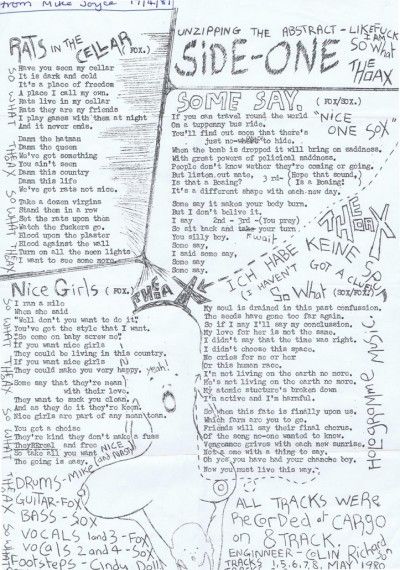 from Mike Joyce 17/4/81
UNZIPPING THE ABSTRACT - LIKE FUCK
I AM
SO WHAT
THE HOAX
SIDE-ONE
RATS IN THE CELLAR (FOX.)
Have you seen my cellar
It is dark and cold
It's a place of freedom
A place I call my own.
Rats live in my cellar
Rats they are my friends
I play games with them at night
And it never ends.
Damn the batman
Damn the queen
We've got something
You ain't seen
Damn this country
Damn this life
We've got rats not nice.
Take a dozen virgins
Stand them in a row
Set the rats upon them
Watch the fuckers go.
Blood upon the plaster
Blood against the wall
Turn on all the neon lights
I want to see some more.
SOME SAY. (FOX/SOX.)
If you can travel round the world
On a tuppenny bus ride.
You'll find out soon that there's
just no-where to hide.
When the bomb is dropped it will bring on saddness,
With great powers of policical maddness.
People don't know wether they're coming or going.
But listen out mate, 3 rd- (Hope that sound,)
Is that a Boeing? (Is a Boeing!
It's a different shape with each new day.
Some say it makes your body burn.
But I don't belive it.
I say 2nd - 3rd -(You pray)
So sit back and take your turn
You silly boy, wait
Some say,
I said some say,
Some say
Some say.
"NICE ONE SOX"
THE HOAX
ICH HABE KEINE
(I HAVEN'T GOT A CLUE)
THE HOAX
Nice Girls (FOX.)
I ran a mile
When she said
"Well don't you want to do it"
You've got the style that I want.
"So come on baby screw me"
If you want nice girls
They could be living in this country.
If you want nice girls
They could make you very happy. yeah!
Some say that they're mean
with their love.
They want to suck you clean.
And as they do it they're keen.
Nice girls are part of any mean team.
You got a choise
They're kind they don't make a fuss
They're real and free
So take all you want
The going is easy.
NICE (and NASH)
So What (SOX/FOX.)
My soul is drained in this past confussion.
The seeds have gone too far again.
So if I may I'll say my conclussion.
My love for her is not the same.
I didn't say that the time was right.
I didn't choose this space.
No cries for no or her
Or this human race.
I'm not living on the earth no more.
He's not living on the earth no more.
My atomic stucture's broken down
I'm active and I'm harmful.
So when this fate is finally upon us,
Which farm are you to go.
Friends will say their final chorus,
Of the song no-one wanted to know.
Vengeance grives with each new sunrise.
Not a one with a thing to say.
Oh yes you have had your chance boy.
Now you must live this way.
HOLOGRAMME MUSIC
DRUMS-Mike
GUITAR-Fox
BASS - Sox
VOCALS 1and3-Fox
VOCALS 2 and 4-Sox
Footsteps - Cindy Doll
ALL TRACKS WERE
Recorded at CARGO
on 8 TRACK.
ENGINNEER - COLIN Richardson
TRACKS 1.5.6.7.8, MAY 1980
SO WHAT THEAX SO WHAT THEAX